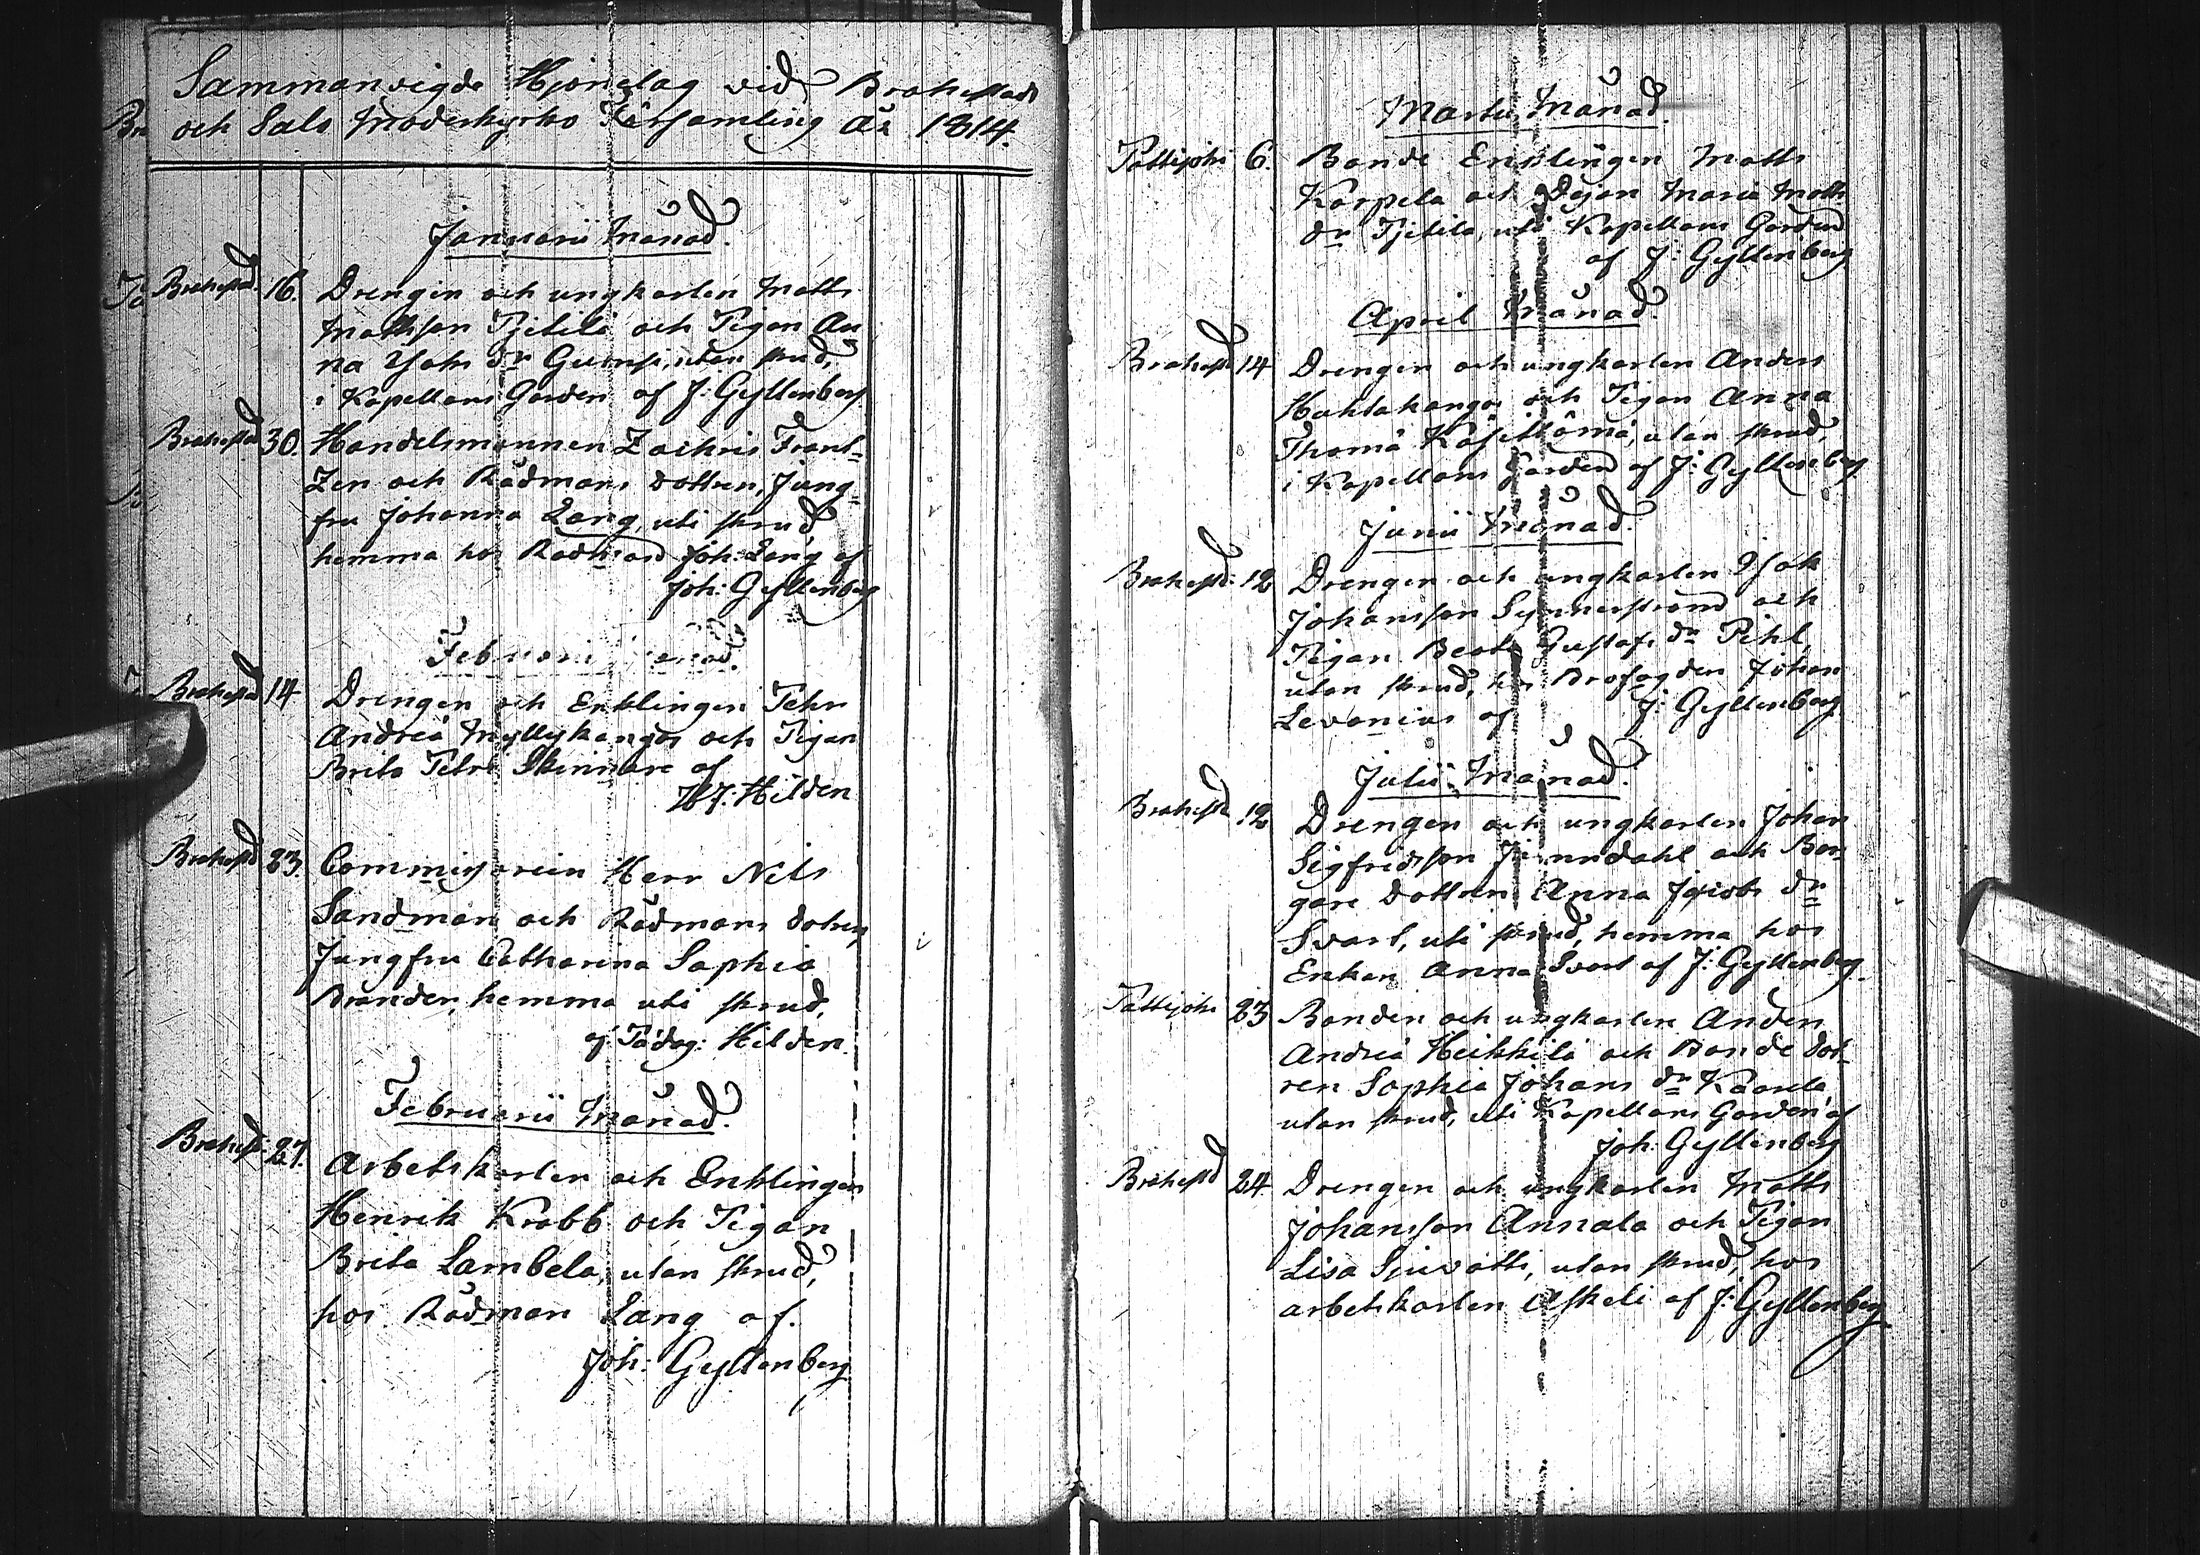 Sammanvigde Hjonelag vid Brahestads
och Salo Moderkyrko Församling År 1814.
Januarii Månad.
Brahestad. 16. Drengen och ungkarlen Matts
Mathsson Pjetilä och Pigan An
na Isaks dr Gumsi, utan skrud,
i Kapellans Gården af J: Gyllenberg
Brahestad 30. Handelsmannen Zachris Frant-
zen och Rådmans Dottren, Jung-
fru Johanna Lang, uti skrud
hemma hos Rådman Joh: Lang af
Joh: Gyllenberg
Februarii Månad.
Brahestad 14 Drengen och Enklingen Petter
Andreä Myllykangas och Pigan
Brita Petri Skinnare af
Hilden
Brahestad 23. Commissarien Herr Nils
Sandman och Rådmans dotren
Jungfru Catharina Sophia
Brander, hemma uti skrud,
af Pädag: Hilden.
Februarii Månad.
Brahest: 27. Arbetskarlen och Enklingen
Henrik Krabb och Pigan
Brita Lambela, utan skrud,
hos Rådman Lang af.
Joh: Gyllenberg
Martii Månad.
Pattijoki 6. Bonde Enklingen Matts
Karpela och Dejan Maria Matts
dr Pjetilä, uti Kapellans Gården
af J: Gyllenberg
April Månad.
Brahest 14 Drengen och ungkarlen Anders
Huhtakangas och Pigan Anna
Thomä utan skrud,
i Kapellans Gården af J: Gyllenberg
Junii Månad.
Brahest: 12 Drengen och ungkarlen Isak
Johansson Synnerstrand och
Pigan Beata Gustafs dr Pihl,
utan skrud, hos Brofogden Johan
Levonius af J: Gyllenberg
Julii Månad.
Brahestd 12 Drengen och ungkarlen Johan
Sigfridsson och Bor-
gare Dottren Anna Jacobs dr
Svart, uti skrud, hemma hos
Enkan Anna Svart af J: Gyllenberg.
Pattijoki 23 Bonden och ungkarlen Anders
Andreä Heikkilä och Bonde dot-
ren Sophia Johans dr Kaarela
utan skrud, uti Kapellans Gården af
Joh: Gyllenberg
Brahestd 24. Drengen och ungkarlen Matts
Johansson Annala och Pigan
Lisa utan skrud, hos
arbetskarlen af J: Gyllenberg